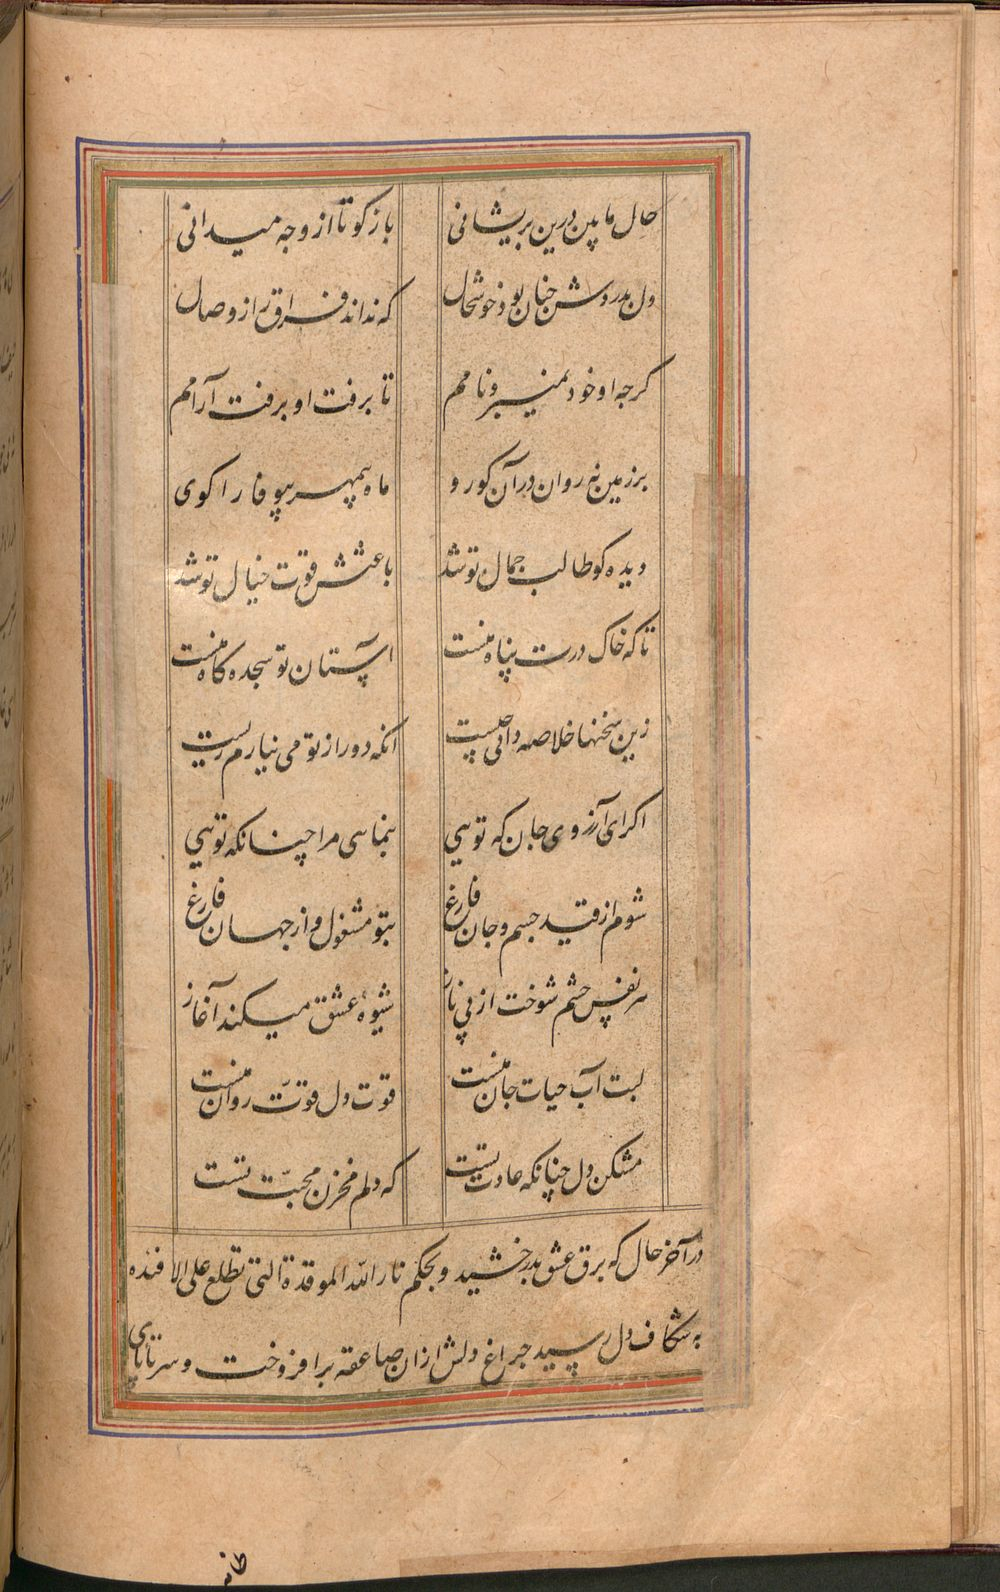 حال ما بین درین پریشانی باز کو تا از وجه میدانی
دل بدردش چنان بود خوشحال که نداند فراق را ز وصال
کرچه او خود نمیبرد نامم تا برفت او برفت آرامم
بر زمین نه روان در آن کو رو ماه بیمهر بیوفا را کوی
دیده کو طالب جمال تو شد باعثش قوت خیال تو شد
تا که خاک درت پناه منست آستان تو سجده کاه منست
زین سخنها خلاصه دانی چیست انکه دور از تو می نیارم زیست
اکر ای آرزوی جان که تویی بنماسی مرا چنانکه تویی
شوم از قید جسم و جان فارغ بتو مشغول و از جهان فارغ
هر نفس چشم شوخت از پی ناز شیوهٔ عشق میکند آغاز
لبت آب حیات جان منست قوت دل قوّت روان منست
مشکن دل چنانکه عادت تست که دلم مخزن محبّت تست
در آخر حال که برق عشق بدرخشید و بحکم نار الله الموقدة التی تطلع علی الافئده
به شکاف دل رسید چراغ دلش از ان صاعقه برافروخت و سر تا پای